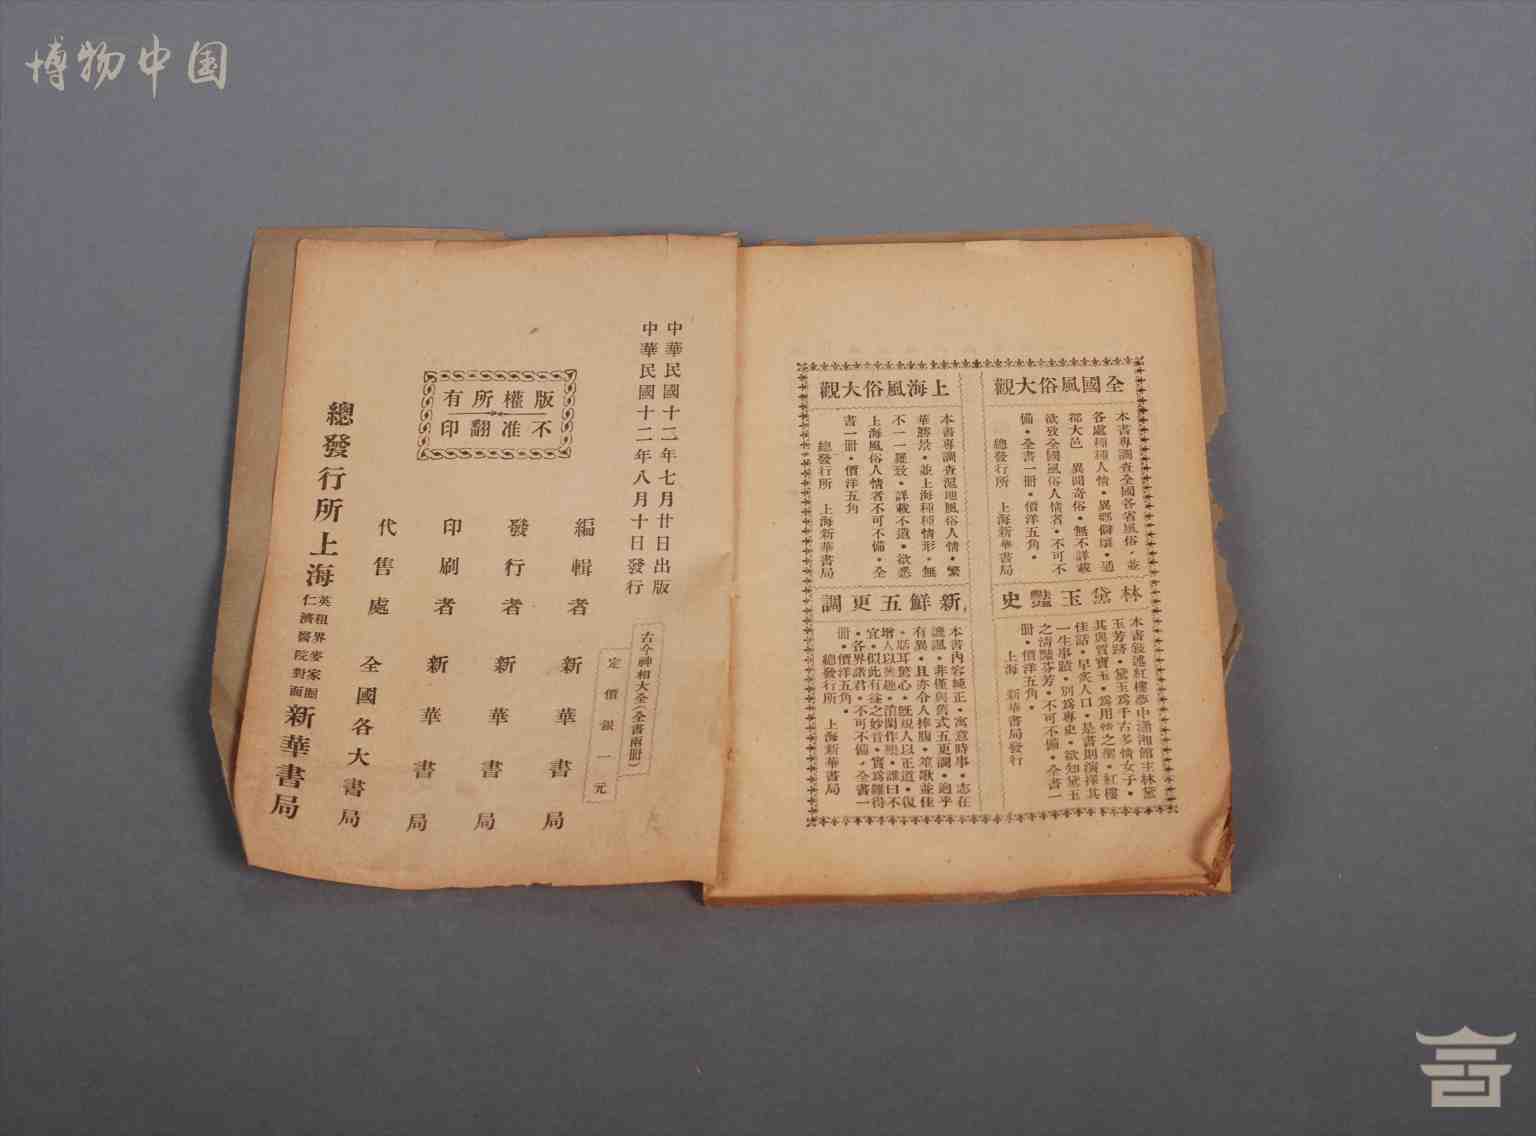 博物中国
全國風俗大觀
本書專調查全國各省風俗·並
各處種種人情·異鄉僻壤·通
都大邑 異聞奇俗·無不詳載
欲攷全國風俗人情者·不可不
備·全書一册·價洋五角·
總發行所 上海新華書局
上海風俗大觀
本書專調查滬地風俗人情·繁
華勝景·並上海種種情形·無
不一一羅致·詳載不遺·欲悉
上海風俗人情者不可不備·全
書一册·價洋五角
總發行所 上海新華書局
林黛玉豔史
本書敍述紅樓夢中瀟湘館主林黛
玉芳跡·黛玉爲千古多情女子·
其與賈寶玉·爲用情之聖·紅樓
佳話·早炙人口·是書則演擇其
一生事蹟·別爲專史·欲知黛玉
之清豔芬芳·不可不備·全書一
册·價洋五角·
上海 新華書局發行
新鮮五更調
本書內容純正·寓意時事·志在
諷·非僅與舊式五更調·迥乎
有異·且亦令人捧腹·笙歌並佳
·聒耳驚心·旣規人以正道·復
增人以興趣·消閑作樂·誰曰不
宜·似此有益之妙音·實爲難得
·各界諸君·不可不備·全書一
册·價洋五角·
總發行所 上海新華書局
中華民國十二年七月廿日出版
中華民國十二年八月十日發行
古今神相大全(全書兩册)
定價銀一元
版權所有
不准翻印
編輯者 新華書局
發行者 新華書局
印刷者 新華書局
代售處 全國各大書局
總發行所上海英租界麥家圈仁濟醫院對面新華書局